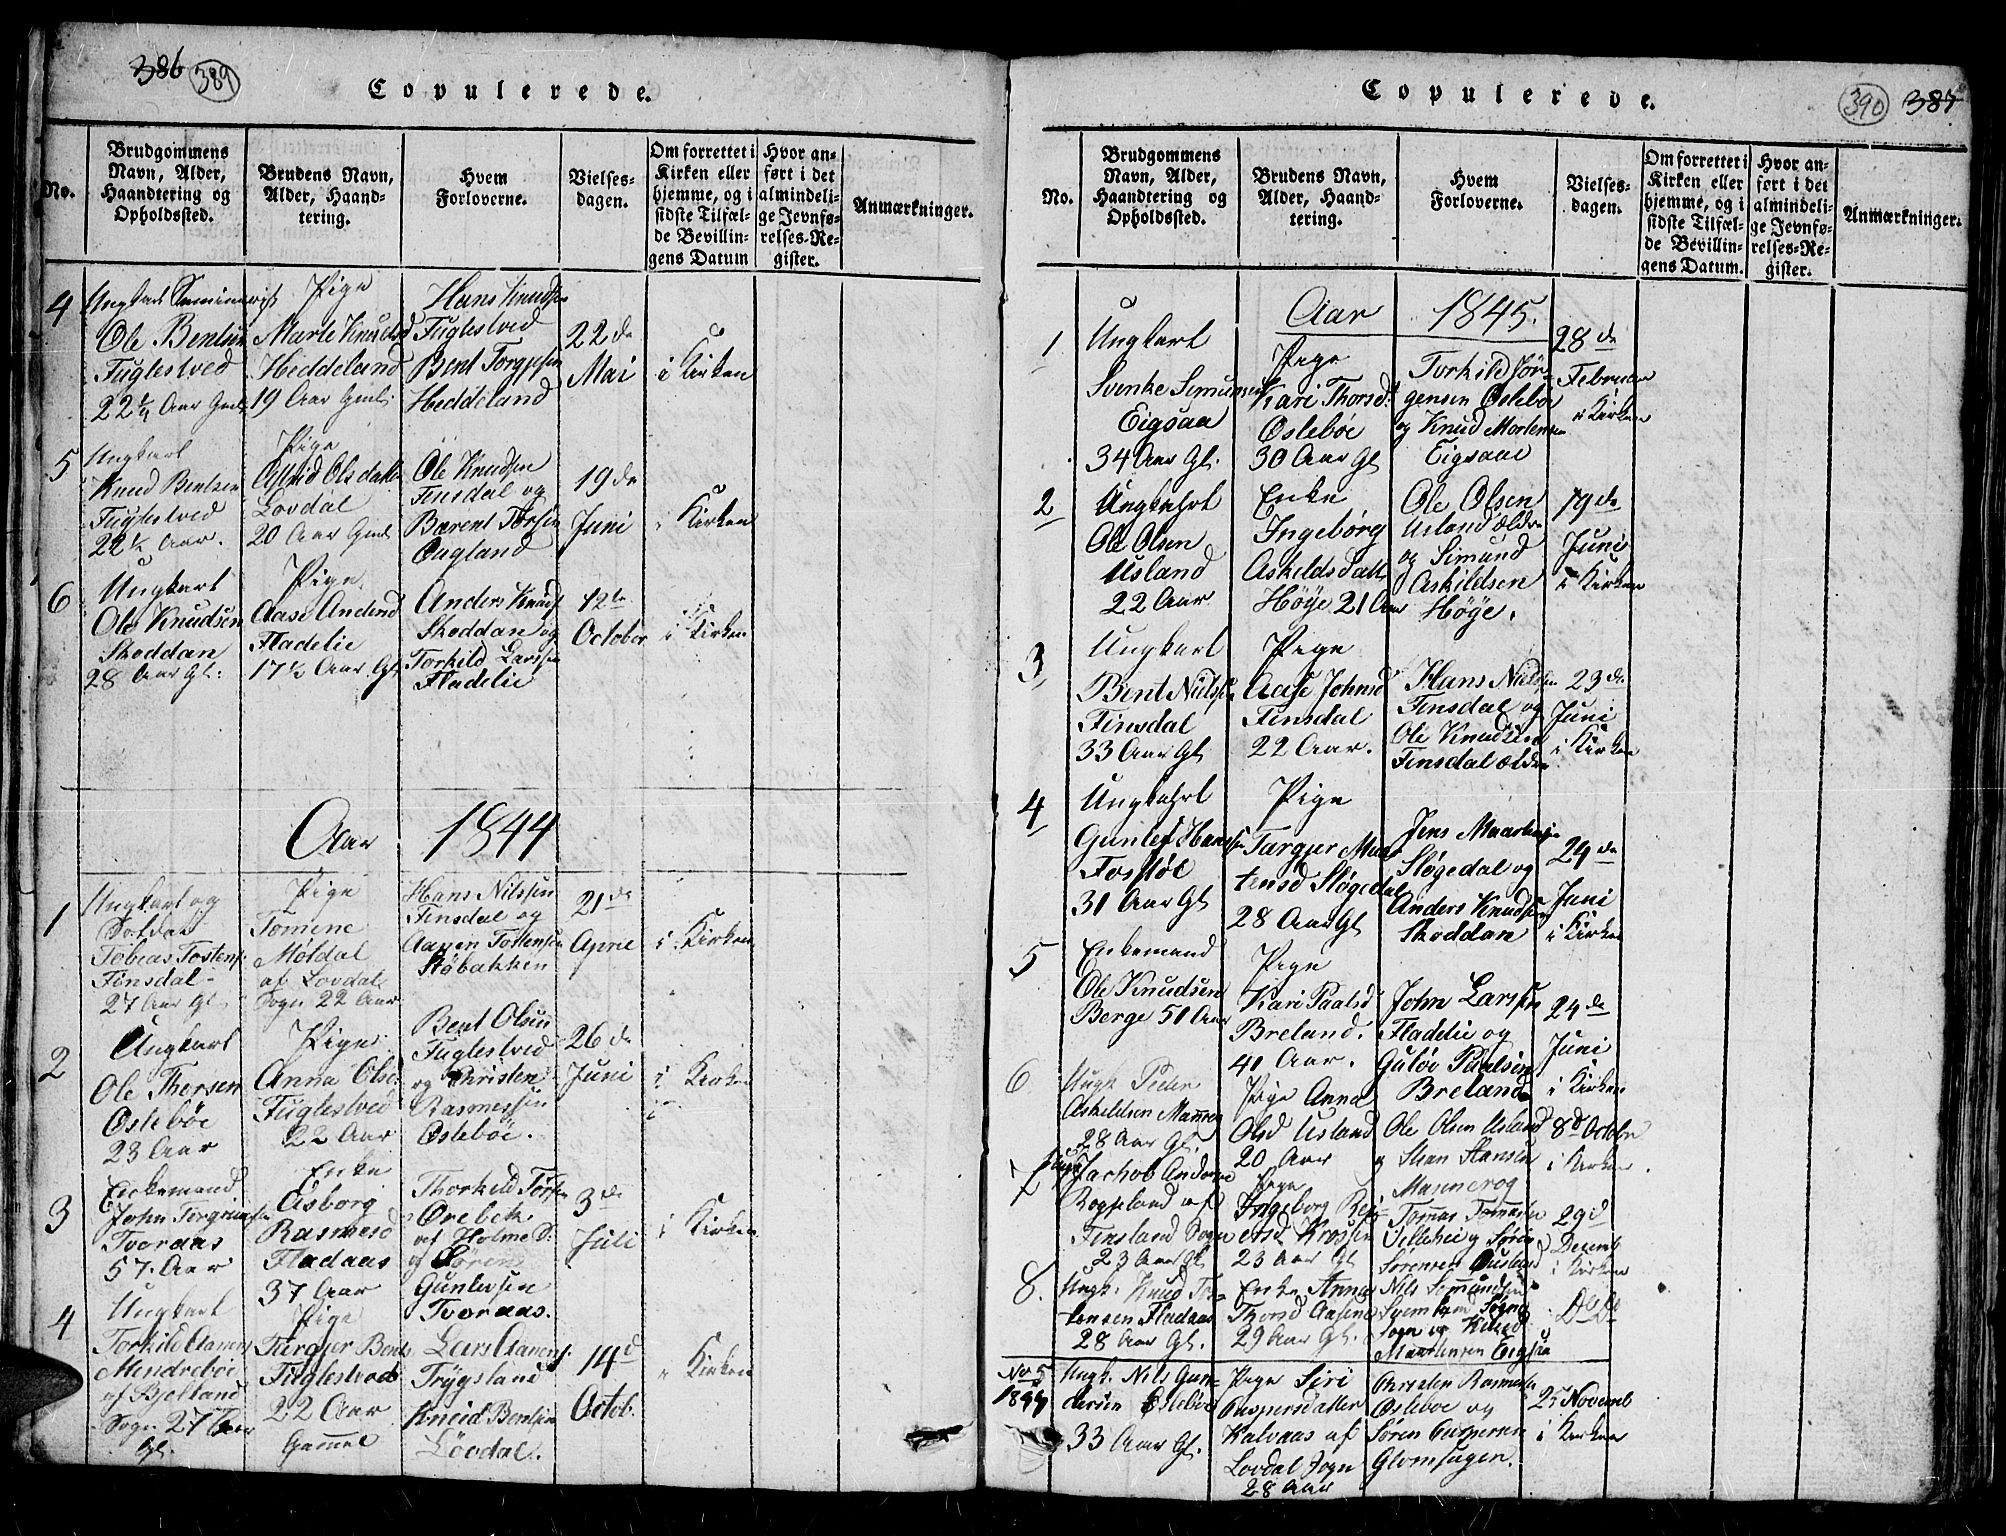 386 389
Copulerede.
No.
Brudgommens Navn, Alder, Haandtering og Opholdssted.
Brudens Navn, Alder, Haandtering.
Hvem Forloverne.
Vielsesdagen.
Om forrettet i Kirken eller hjemme, og i sidste Tilfælde Bevillingens Datum
Hvor anført i det almindelige Jevnførelses-Register.
Anmærkninger.
4
Ungkarl Seminarist
Ole Bentsen
Fuglestved
22 1/4 Aar Gml.
Pige
Marte Knudsd
Heddeland
19 Aar Gml.
Hans Knudsen
Fuglestved
Bent Torgjesen
Heddeland
22de
Mai
i Kirken
5
Ungkarl
Knud Bentsen
Fuglestved
22 1/2 Aar.
Pige
Astrid Olsdatt
Lovdal
20 Aar Gml
Ole Knudsen
Finsdal og
Bærent Torsen
Ougland
19de
Juni
" Kirken
6
Ungkarl
Ole Knudsen
Skoddan
28 Aar Gl:
Pige
Aase Andersd
Fladelie
17 1/2 Aar Gl
Anders Knuds
Skoddan og
Torkild Larssen
Fladelie
12te
October
i Kirken
Aar 1844
1
Ungkarl og
Soldat
Tobias Tostens.
Finsdal
27 Aar Gl
Pige
Tomene
Møldal
af Lovdal
Sogn 22 Aar
Hans Nilssen
Finsdal og
Aanen Tostensen
Støbakken
21de
April
i Kirken
2
Ungkarl
Ole Thorsen
Osleböe
23 Aar
Pige
Anna Olsd
Fuglestved
22 Aar
Bent Olsen
Fuglestved
og Christen
Rasmessen
Osleböe.
26de
Juni
i Kirken
3
Enkemand
John Torgrimsen
Tvoraas
57 Aar
Enke
Asborg
Rasmesd
Fladaas
37 Aar
Thorkild Torsen
Orebek
af Holme S:
og Sören
Guntersen
Tvoraas.
3de
Juli
i Kirken
4
Ungkarl
Torkild Aanens
Mendreboe
af Bjelland
Sogn 27 Aar
Gl.
Pige
Targjer Bents
Fuglestved
22 Aar
Gammel
Lars Aanens
Trygsland
Kneid Bentsen
Lövdal.
14d
Octob.
" Kirken
Copulerede.
390 387
No.
Brudgommens Navn, Alder, Haandtering og Opholdssted.
Brudens Navn, Alder, Haandtering.
Hvem Forloverne.
Vielsesdagen.
Om forrettet i Kirken eller hjemme, og i sidste Tilfælde Bevillingens Datum.
Hvor anført i det almindelige Jevnførelses-Register.
Anmærkninger.
Aar 1845.
1
Ungkarl
Svenke Simunsen
Eigsaa
34 Aar Gl.
Pige
Kari Thorsd.
Oslebőe
30 Aar Gl
Torkild Jör-
gensen Oslebö
og Knud Mortensen
Eigsaae
28de
Februar
i Kirken
2
Ungkahrl
Ole Olsen
Usland
22 Aar
Enke
Ingebörg
Askildsdatt
Höye 21 Aar
Ole Olsen
Usland ældre
og Simund
Askildsen
Höye.
19de
Juni
i Kirken
3
Ungkarl
Bent Nielssen
Finsdal
33 Aar Gl
Pige
Aase Johnsd
Finsdal
22 Aar.
Hans Nielssen
Finsdal og
Ole Knudsen
Finsdal ældre
23de
Juni
i Kirken
4
Ungkahrl
Gunlef Hanssen
Fosstöl
31 Aar Gl
Pige
Targjer Mar
tensd Slögedal
28 Aar Gl
Jens Maartensen
Slögedal og
Anders Knudsen
Skoddan
24de
Juni
i Kirken
5
Enkemand
Ole Knudsen
Berge 50 Aar
Pige
Kari Paalsd
Breland.
41 Aar.
John Larssen
Fladelie og
Gulöv Paalsen
Breland
24de
Juni
i Kirken
6
Ungk. Peder
Askildsen Manner
28 Aar Gl.
Pige Anna
Olsd Usland
20 Aar
Ole Olsen Usland
og Hansen
Mannerog
8d Octobr
i Kirken.
7
Jachob Anders
Roppeland af
Finsland Sogn
23 Aar Gl
Pige
Ingeborg Rei-
ersd Krossen
23 Aar Gl
Tomas Tomesen
og Sören
Sörensen
29d
Decemb
i Kirken
8.
Ungk. Knud Tos-
tensen Fladaas
28 Aar Gl.
Enke Anna
Thorsd Aasene
29 Aar Gl.
Nils Semundsen
Sögne
Sogn og Kittel
Maartensen Eigsaa
Do Do
No 5
1844
Ungk. Nils Gun-
dersen Osleböe
33 Aar Gl.
Pige Siri
Caspersdatter
Kalvaas af
Lovdal Sogn
28 Aar
Christen Rasmesen
Osleboe og
Sören Caspersen
Glomsagen.
25 Novemb
i Kirken